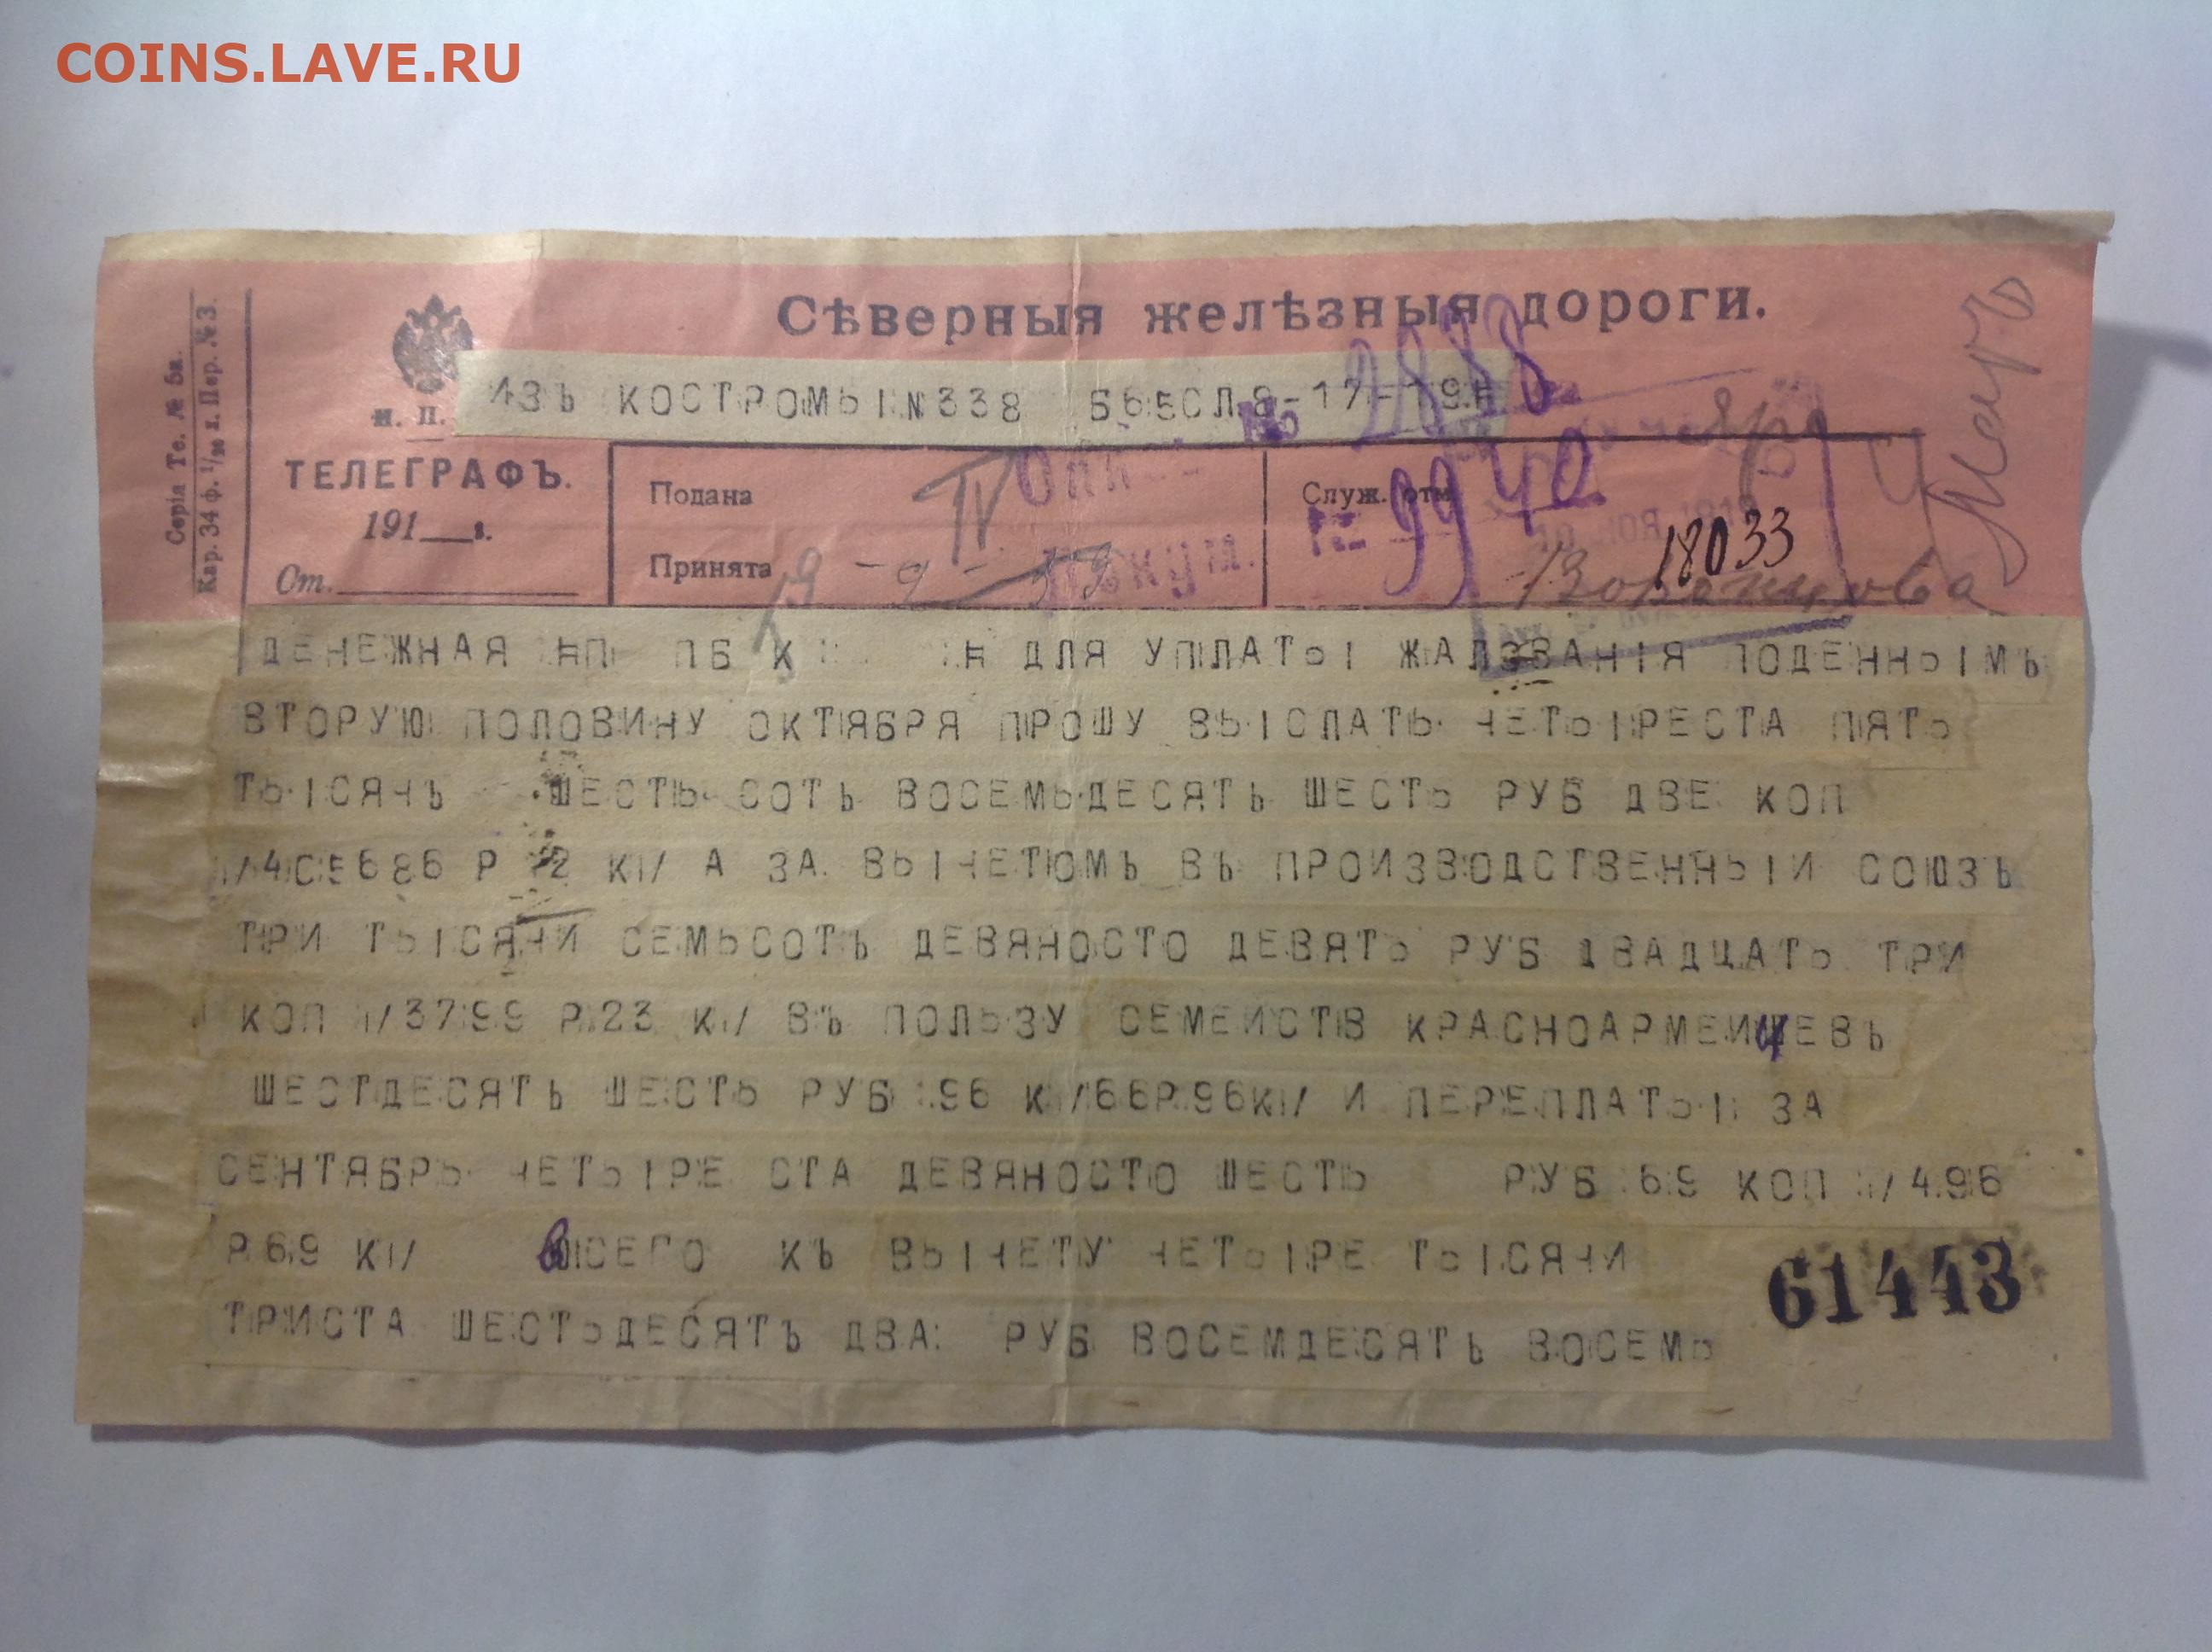 COINS.LAVE.RU
Сѣверныя желѣзныя дороги.
Серія Те. № 5а.
Кар. 34 ф. 1/20 д. Пер. № 3.
ИЗЪ КОСТРОМЫ N 338
№ 2888
н. п.
ТЕЛЕГРАФЪ.
191 г.
Ст.
Подана
IV
Принята
Служ. отм
№ 9940
18033
Воронцова
ДЕНЕЖНАЯ ДЛЯ УПЛАТЫ ЖАЛОВАНІЯ ПОДЕННЫМЪ
ВТОРУЮ ПОЛОВИНУ ОКТЯБРЯ ПРОШУ ВЫСЛАТЬ ЧЕТЫРЕСТА ПЯТЬ
ТЫСЯЧЪ ШЕСТЬ СОТЪ ВОСЕМЬДЕСЯТЪ ШЕСТЬ РУБ ДВЕ КОП
/4С5686 Р 2 К/ А ЗА ВЫЧЕТОМЪ ВЪ ПРОИЗВОДСТВЕННЫИ СОЮЗЪ
ТРИ ТЫСЯЧИ СЕМЬСОТЪ ДЕВЯНОСТО ДЕВЯТЬ РУБ ДВАДЦАТЬ ТРИ
КОП /3799 Р 23 К/ ВЪ ПОЛЬЗУ СЕМЕИСТВ КРАСНОАРМЕИЦЕВЪ
ШЕСТДЕСЯТЪ ШЕСТЬ РУБ 96 К /66Р96К/ И ПЕРЕПЛАТЫ ЗА
СЕНТЯБРЬ ЧЕТЫРЕ СТА ДЕВЯНОСТО ШЕСТЬ РУБ 69 КОП /496
Р 69 К/ ВСЕГО КЪ ВЫЧЕТУ ЧЕТЫРЕ ТЫСЯЧИ
ТРИСТА ШЕСТЬДЕСЯТЪ ДВА РУБ ВОСЕМДЕСЯТЪ ВОСЕМЬ
61443